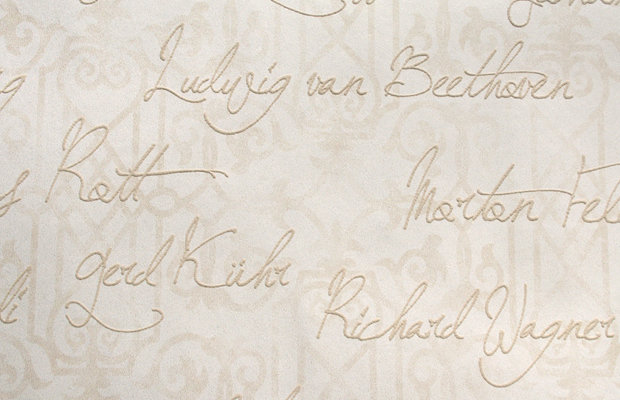 Ludwig van Beethoven
Rott
Morton Fel
Gerd Kühr
Richard Wagner